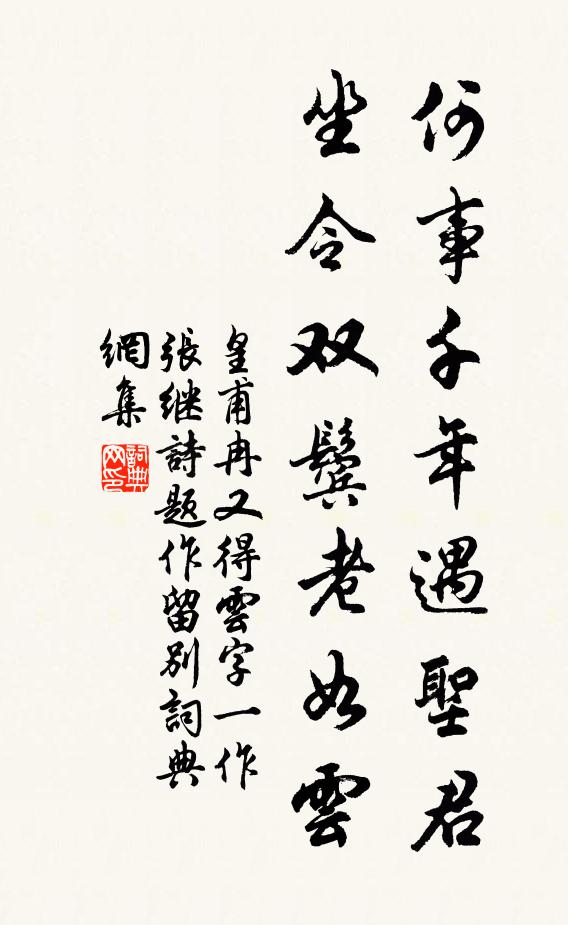 何事千年遇聖君
坐令双鬓老如雲
皇甫冉又得雲字一作
張继詩題作留别詞典
網集
詞典
网印